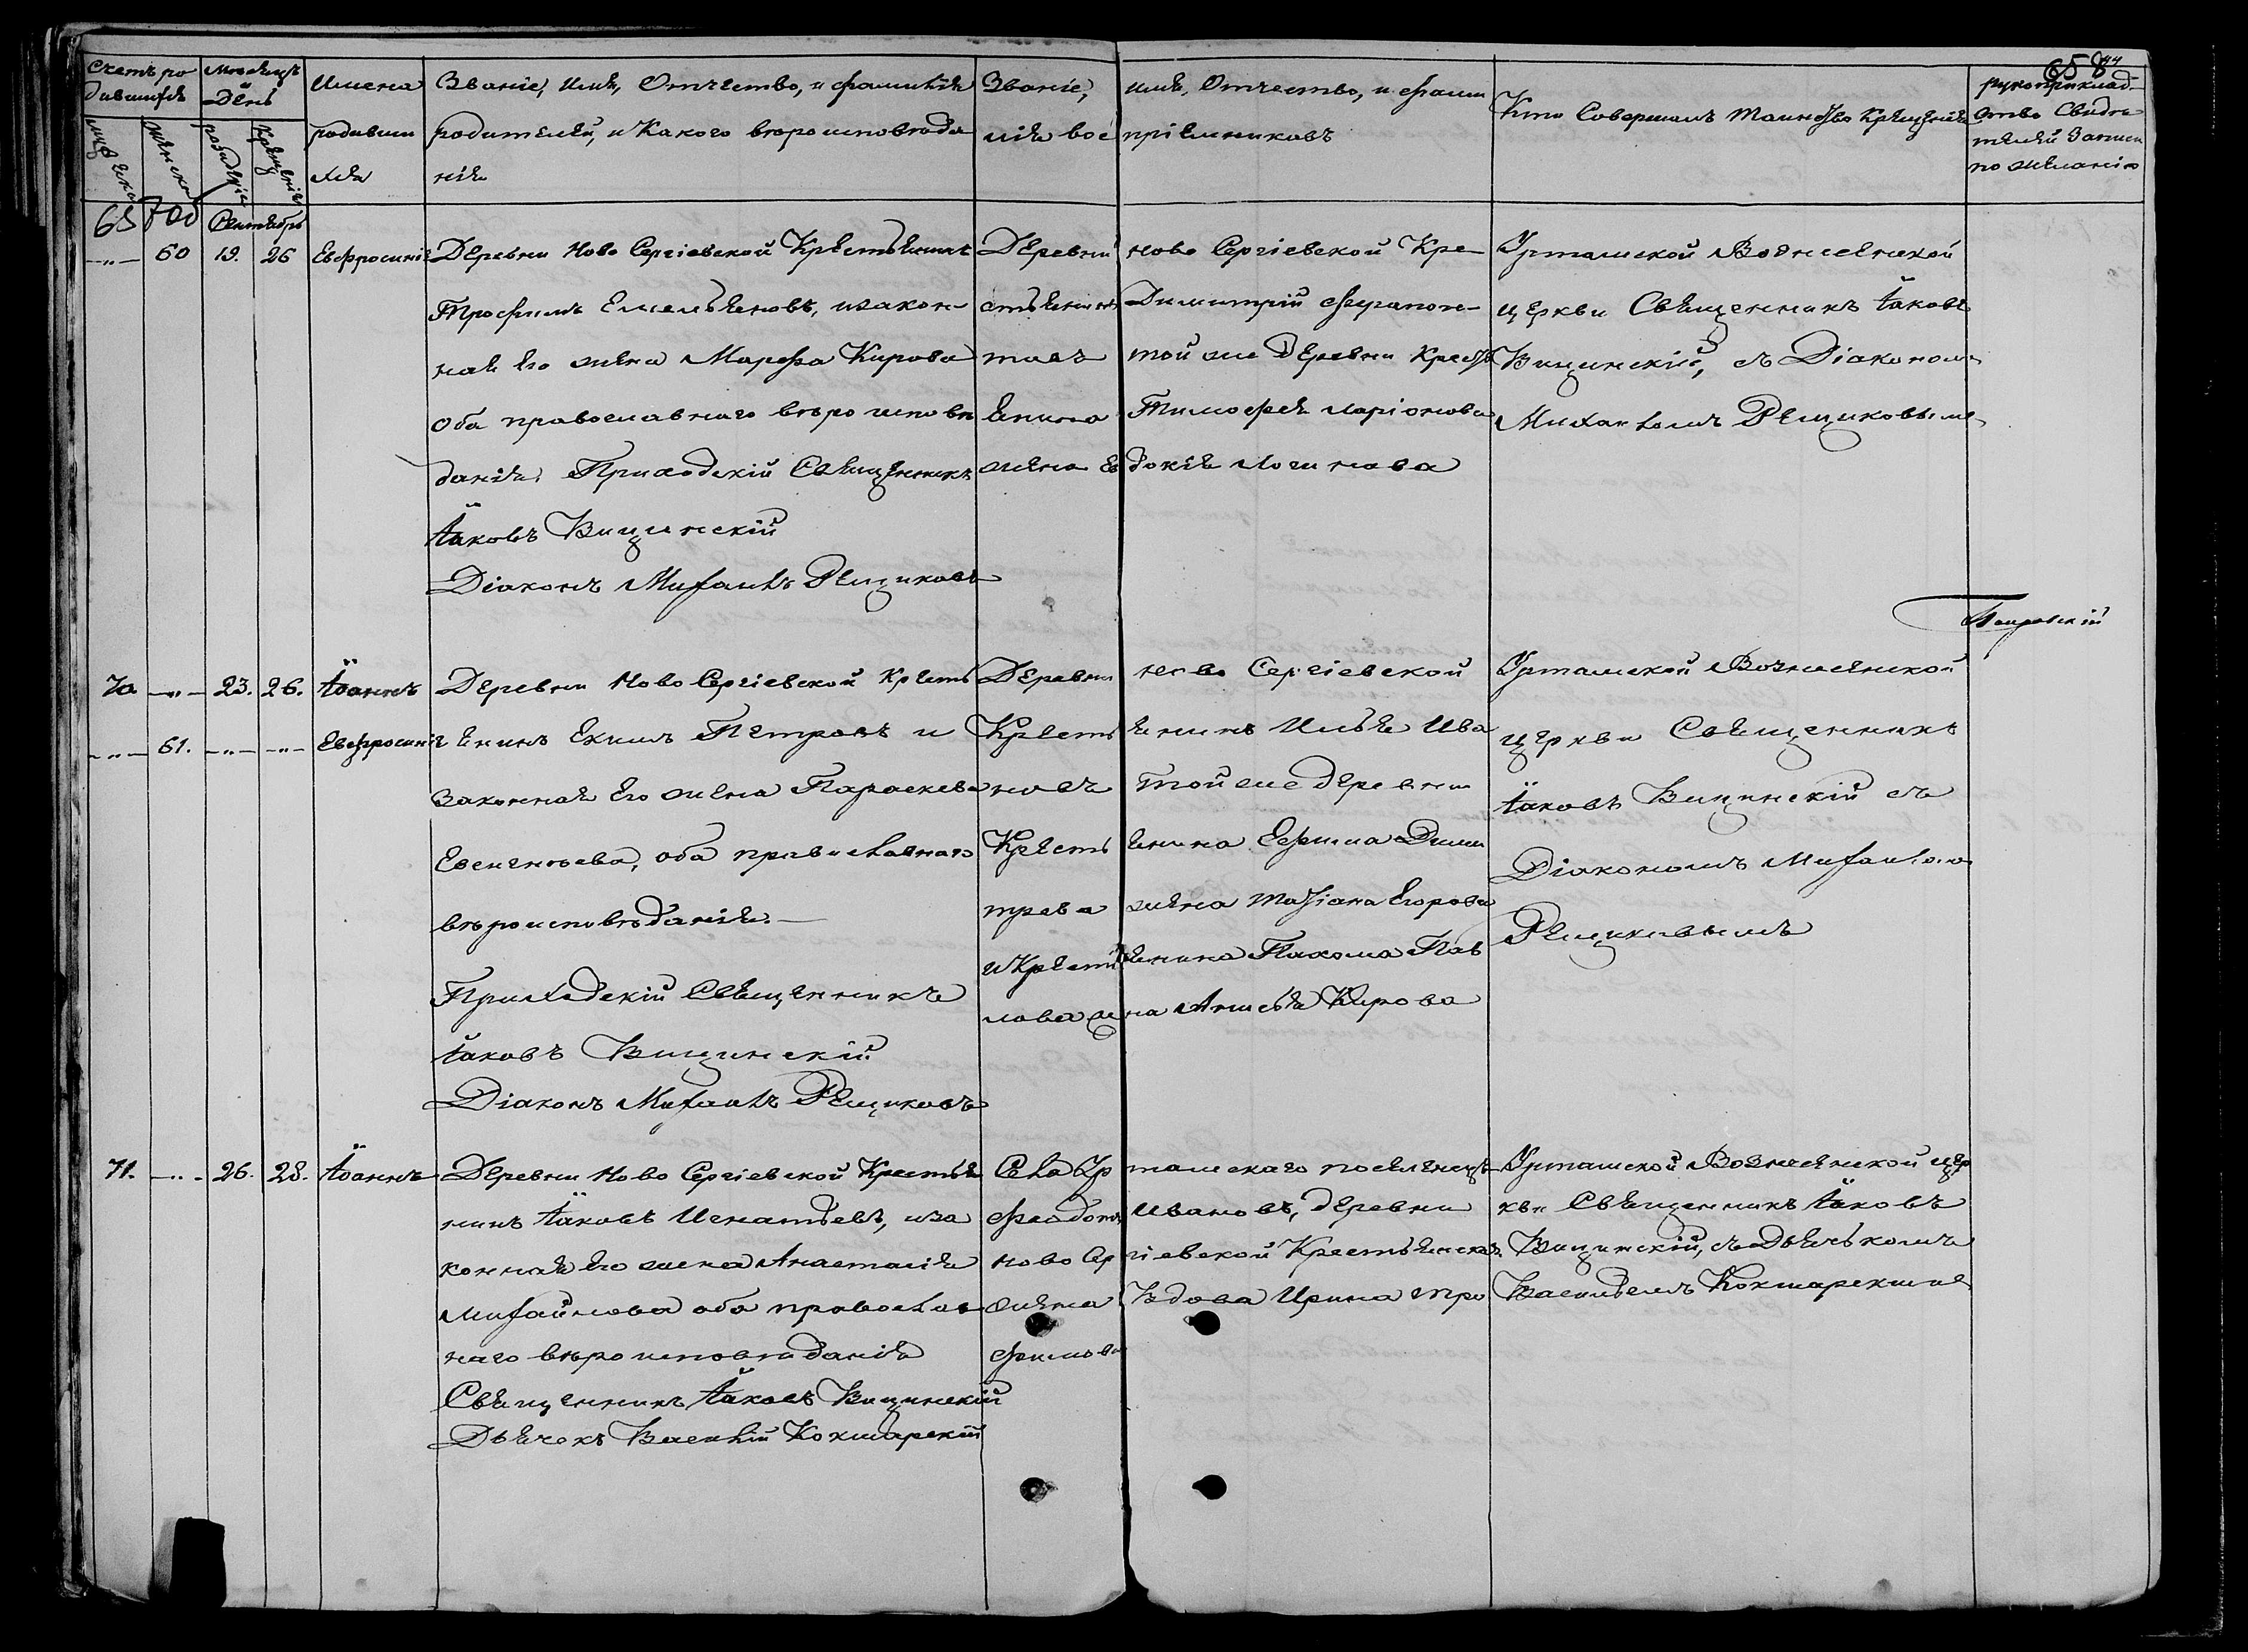 658
44
Счетъ ро
дившихся
Мѣсяцъ
День
Имена
родивши
хся
Званіе, Имя, Отчество, и фамилія
родителей, и Какого вѣроисповѣда
нія
Званіе, имя, Отчество, и фами
лія вос пріемниковъ
Кто Совершалъ Таинство Крещенія
рукоприклад-
ство Свидѣ
телей Записи
по желанію
мужеска
женска
рожденія
Крещенія
Сентябрь
—„— 60 19. 26 Евфросинія
Деревни Ново Сергіевской Крестьянинъ
Трофимъ Емельяновъ, изакон-
ная его жена Марѳа Кирова
Оба православнаго вѣроисповѣ
данія. Приходскій Священникъ
Іаковъ Вищинскій
Діаконъ Михаилъ Рещиковъ
Деревни ново Сергіевской Кре-
стьянинъ Димитрій Ферапон-
товъ той же деревни Кресть
янина Тимофея Ларіонова
жена Евдокія Логинова
Урташской Вознесенской
церкви Священникъ Іаковъ
Вищинскій, съ Діакономъ
Михаиломъ Рещиковымъ
Покровскій
70. —„— 23. 26. Іоаннъ
—„— 61. —„— —„— Евфросинія
Деревни Ново Сергіевской Кресть
янинъ Екимъ Петровъ и
законная его жена Параскева
Евгеньева, оба православнаго
вѣроисповѣданія.—
Приходскій Священникъ
Іаковъ Вищинскій
Діаконъ Михаилъ Рещиковъ
Деревни ново Сергіевской
Кресть янинъ Илья Ива
новъ той же деревни
Кресть янина Ефима Дими
трева жена Татіана Егорова
и Кресть янина Пахома Пав
лова жена Анисья Кирова
Урташской Вознесенской
церкви Священникъ
Іаковъ Вищинскій съ
Діакономъ Михаиломъ
Рещиковымъ
71. —„— 26. 28. Іоаннъ
Деревни Ново Сергіевской Крестья
нинъ Іаковъ Игнатьевъ, иза
конная его жена Анастасія
Михайлова оба православ
наго вѣроисповѣданія
Священникъ Іаковъ Вищинскій
Дьячекъ Василій Кокшарскій
Села Ур ташскаго поселенецъ
Феодотъ Ивановъ, деревни
Ново Сер гіевской Крестьянская
жена Вдова Ирина Тро
фимова
Урташской Вознесенской цер
кви Священникъ Іаковъ
Вищинскій, съ дьячькомъ
Василіемъ Кокшарскимъ